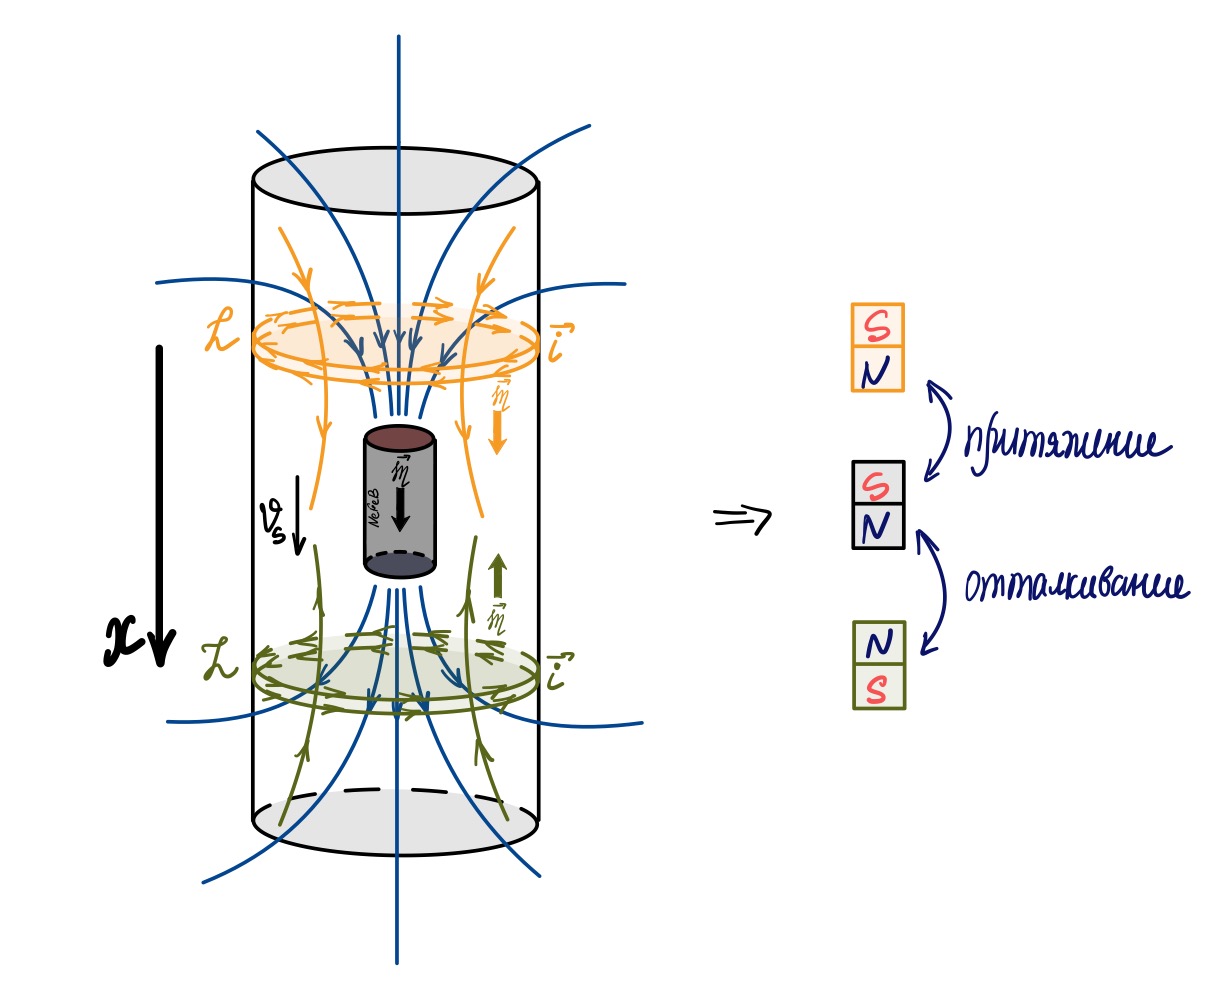 L
i⃗
m⃗
m⃗
NdFeB
ϑₛ
x
m⃗
L
i⃗
S
N
притяжение
S
N
отталкивание
N
S